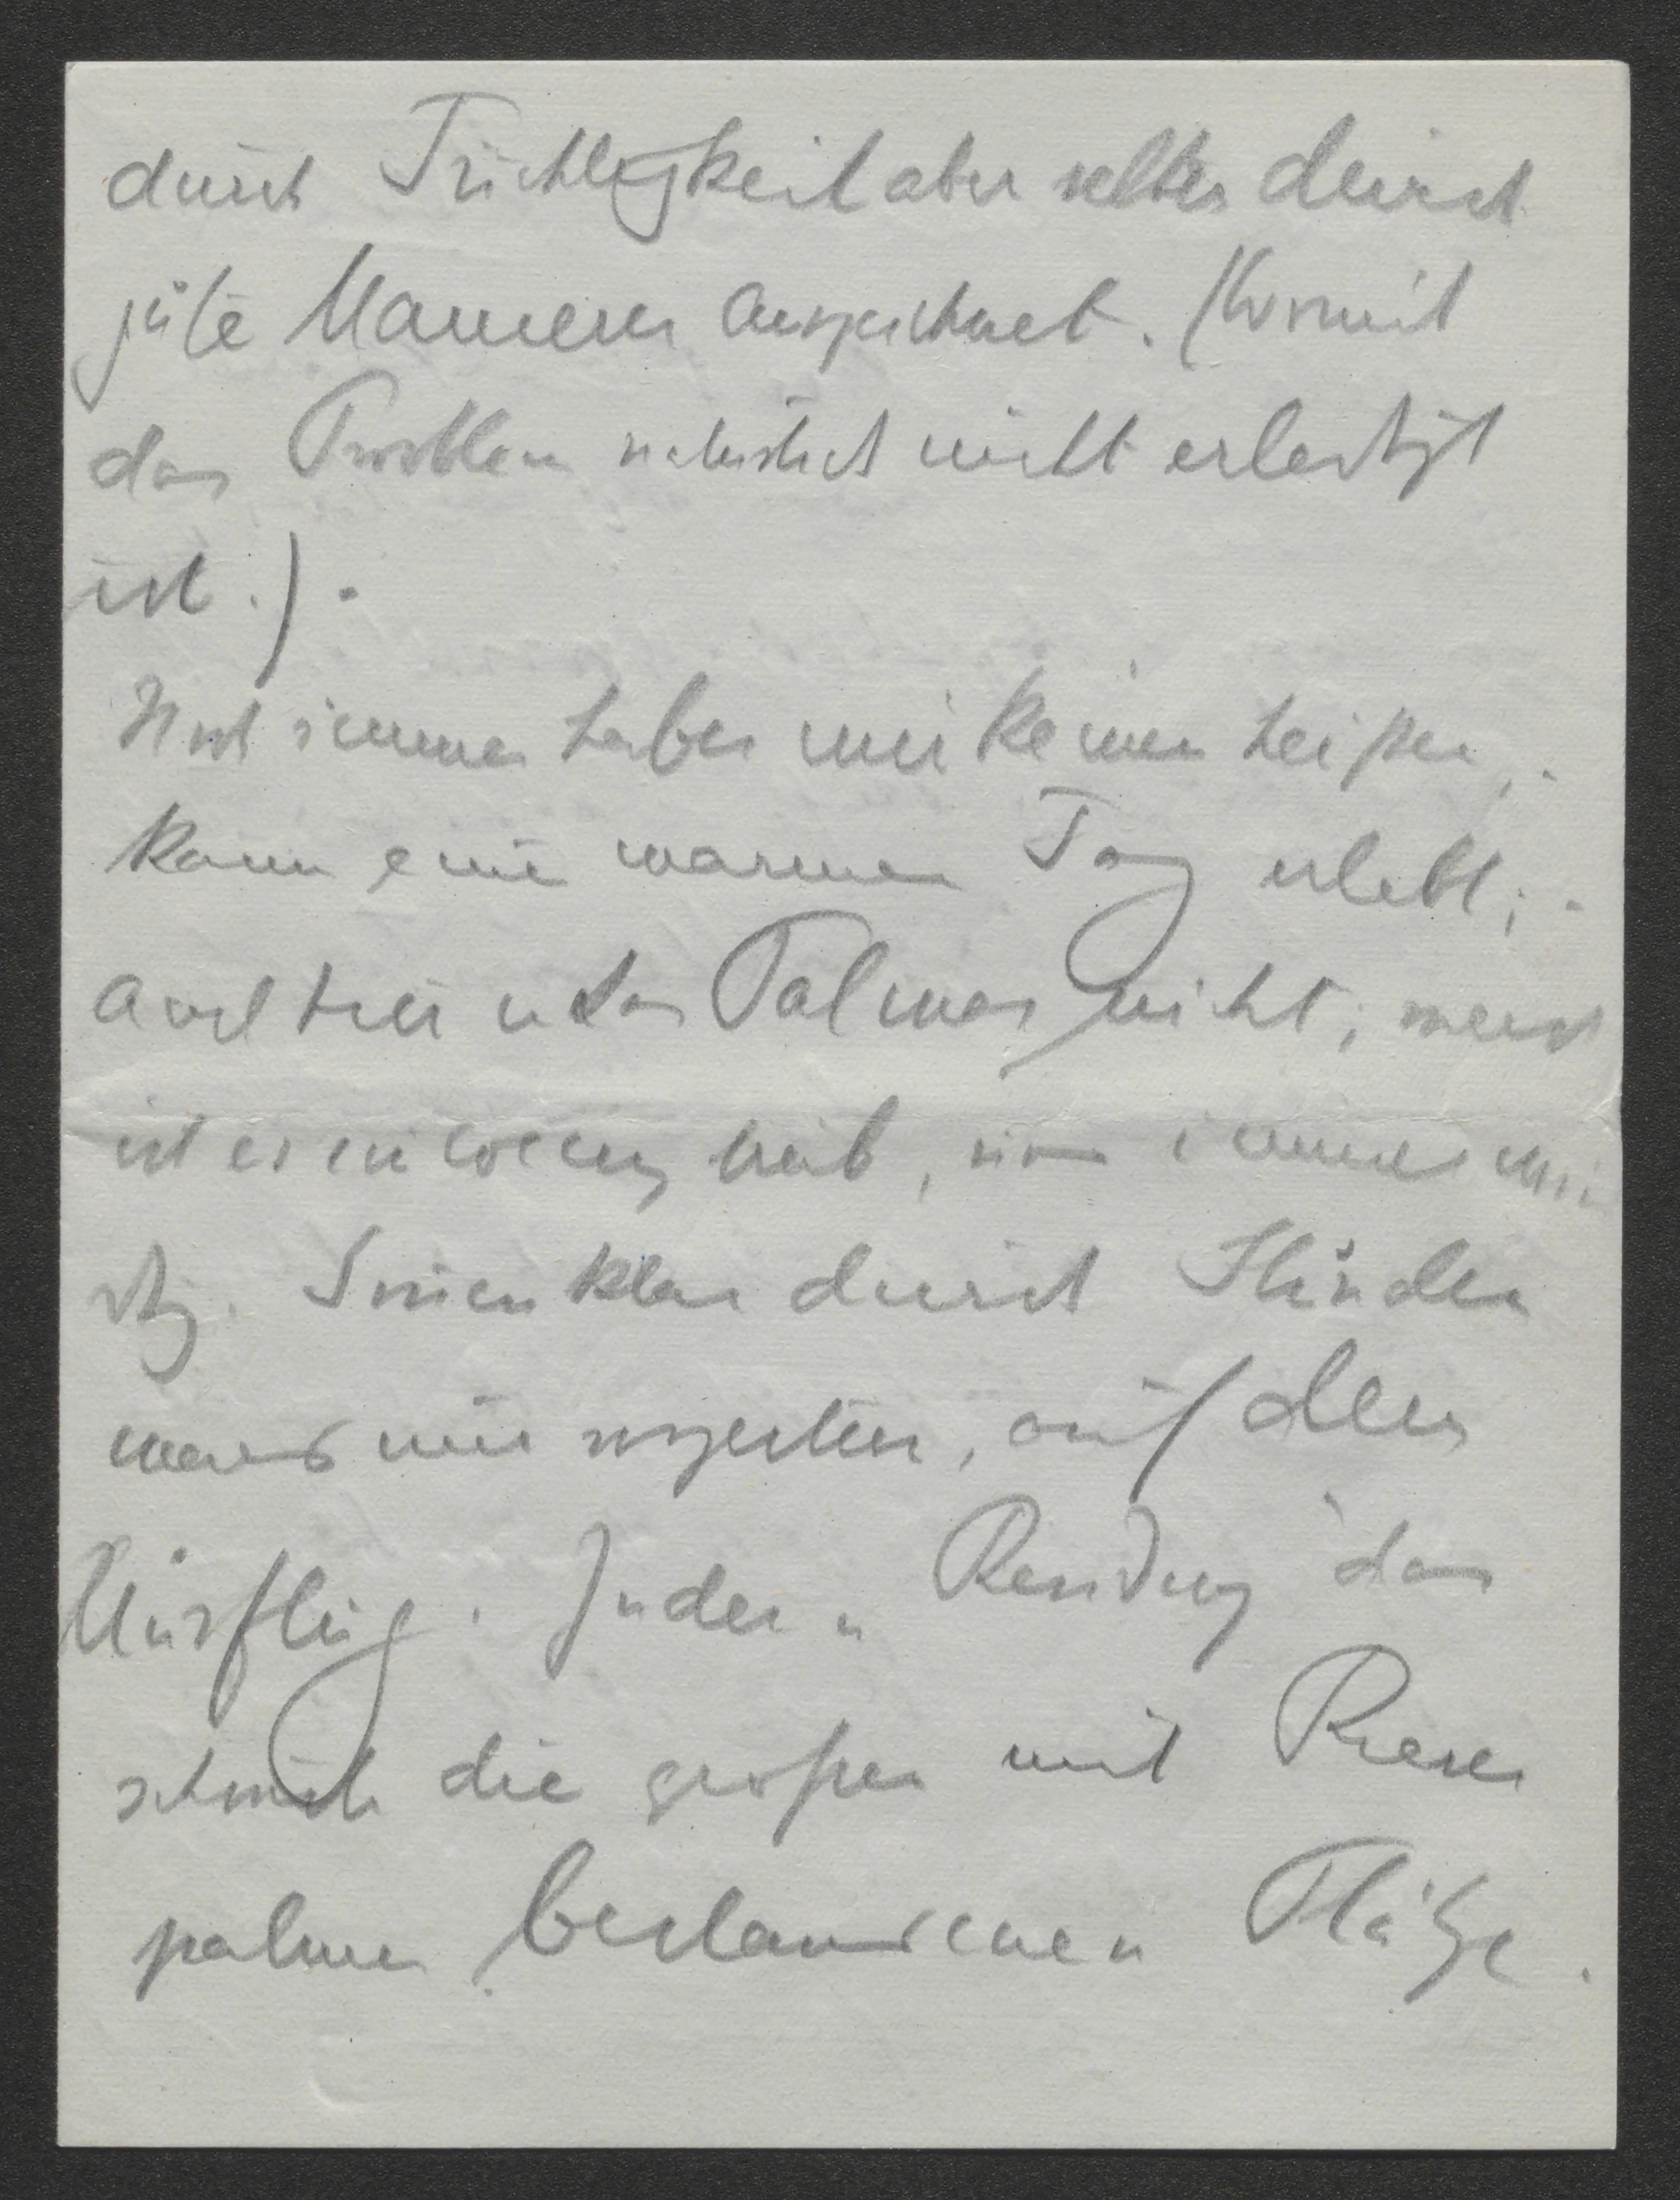 durch Tüchtigkeit aber selten durch
gute Manieren ausgezeichnet. (Womit
das Problem natürlich nicht erledigt
ist.).
Noch immer haben wir keinen heißen,
kaum einen warmen Tag erlebt;
auch hier unter Palmen nicht; meist
ist es ein wenig trüb, nie immer wi
dig. Sonnenklar durch Stunden
war's nur gestern, auf dem
Ausflug. In der Residenz das
schönste die großen mit Riesen
palmen bestandenen Plätze.